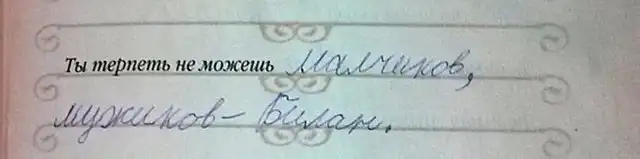 Ты терпеть не можешь малчиков,
мужиков - Билан.